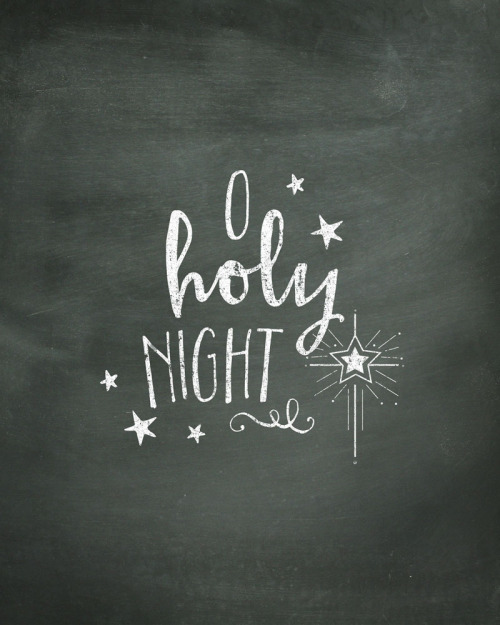 O
holy
NIGHT